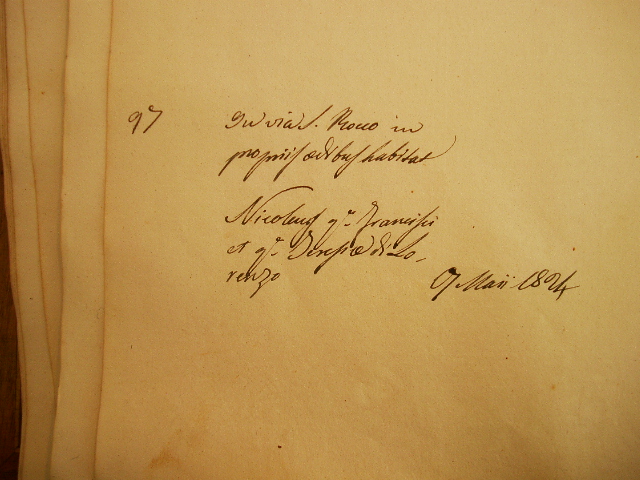 97 In via S. Rocco in
propriis ædibus habitat
Nicolaus q.m Francisci
et q.m Teresiæ di Lo-
renzo 7 Maii 1824